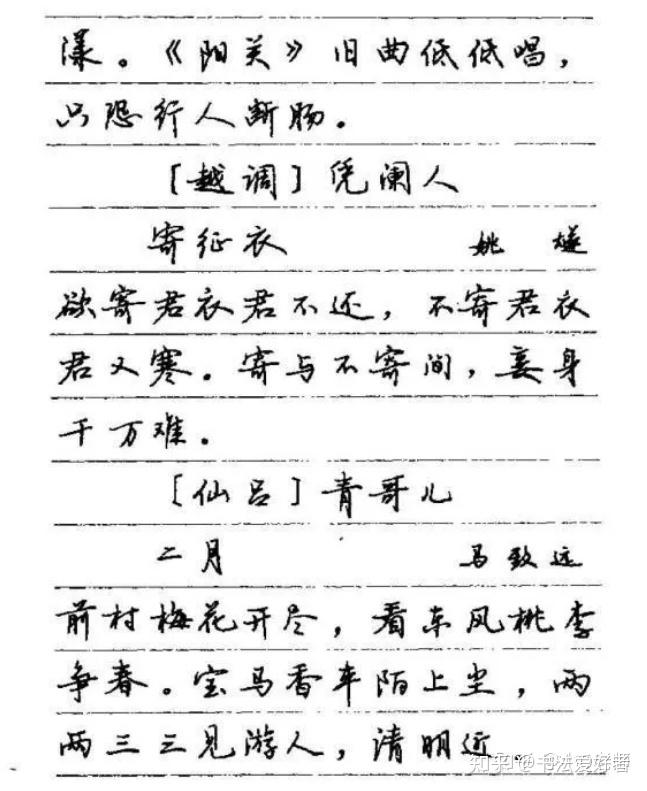 漾。《阳关》旧曲低低唱，
只恐行人断肠。
[越调]凭阑人
寄征衣 姚燧
欲寄君衣君不还，不寄君衣
君又寒。寄与不寄间，妾身
千万难。
[仙吕]青哥儿
二月 马致远
前村梅花开尽，看东风桃李
争春。宝马香车陌上尘，两
两三三见游人，清明近。
知乎 @书法爱好者